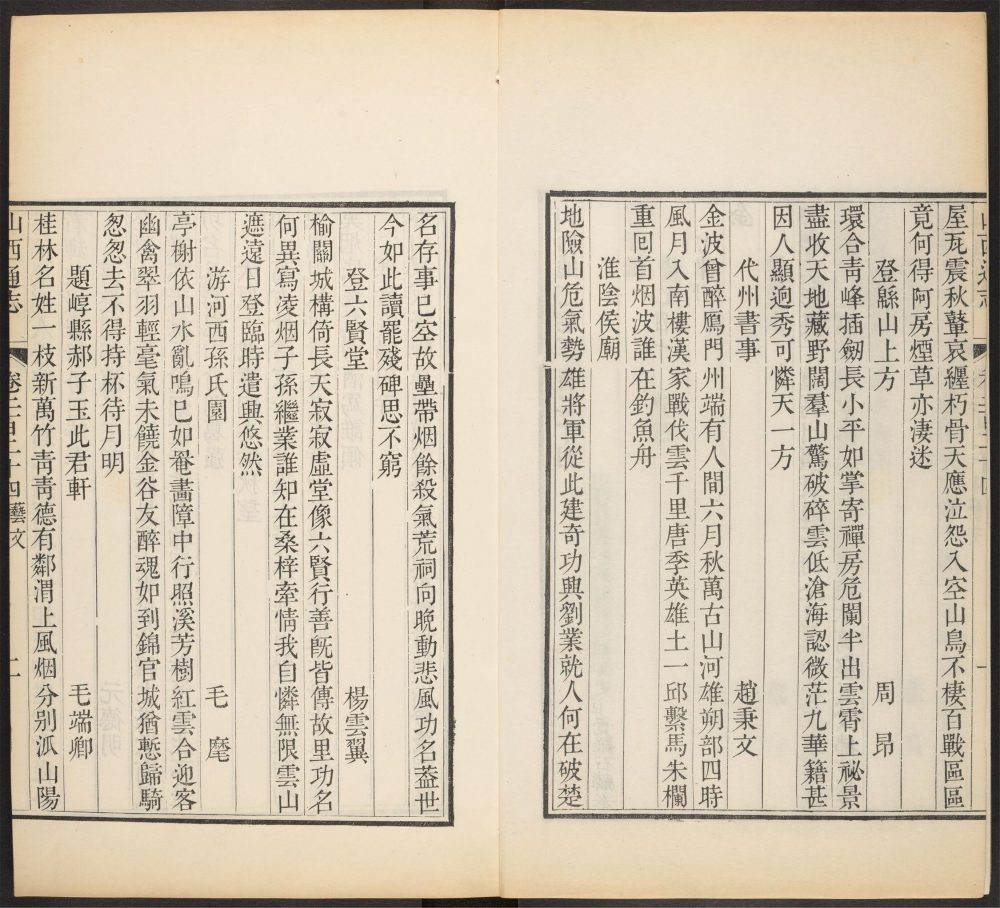 屋瓦震秋鼙哀纏朽骨天應泣怨入空山鳥不棲百戰區區
竟何得阿房煙草亦淒迷
登緜山上方 周昂
環合靑峰插劒長小平如掌寄禪房危闌半出雲霄上祕景
盡收天地藏野闊羣山驚破碎雲低滄海認微茫九華籍甚
因人顯迥秀可憐天一方
代州書事 趙秉文
金波曾醉鴈門州端有人間六月秋萬古山河雄朔部四時
風月入南樓漢家戰伐雲千里唐季英雄土一邱繫馬朱欄
重回首烟波誰在釣魚舟
淮陰侯廟
地險山危氣勢雄將軍從此建奇功興劉業就人何在破楚
名存事已空故壘帶烟餘殺氣荒祠向晚動悲風功名葢世
今如此讀罷殘碑思不窮
登六賢堂 楊雲翼
榆關城構倚長天寂寂虛堂像六賢行善旣皆傳故里功名
何異寫凌烟子孫繼業誰知在桑梓牽情我自憐無限雲山
遮遠日登臨時遣興悠然
游河西孫氏園 毛麾
亭榭依山水亂鳴已如罨畵障中行照溪芳樹紅雲合迎客
幽禽翠羽輕毫氣未饒金谷友醉魂如到錦官城猶慙歸騎
怱怱去不得持杯待月明
題崞縣郝子玉此君軒 毛端卿
桂林名姓一枝新萬竹靑靑德有鄰渭上風烟分别派山陽
山西通志 卷二百二十四藝文 二